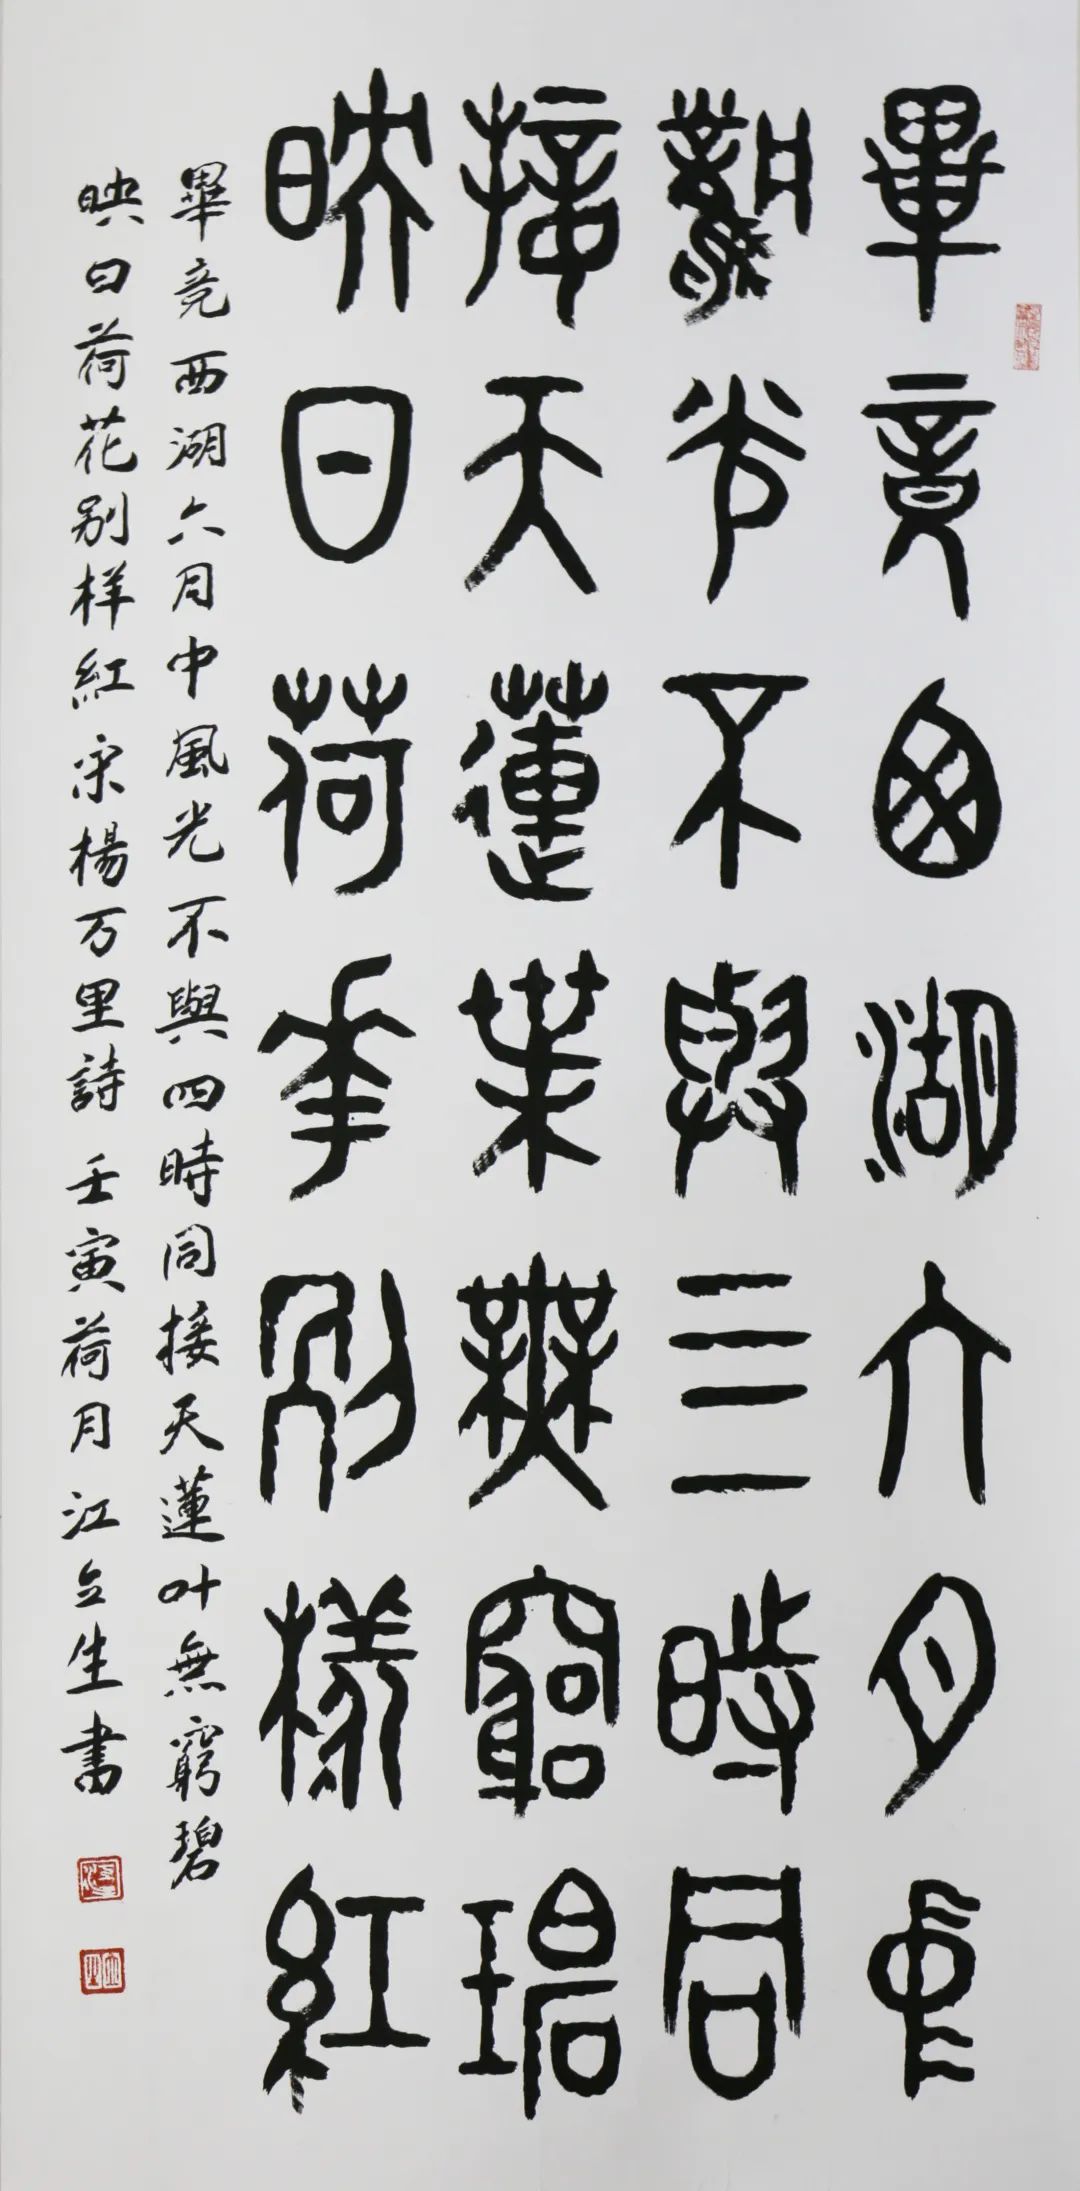 畢竟西湖六月中
風光不與四時同
接天蓮葉無窮碧
映日荷花別樣紅
畢竞西湖六月中風光不與四時同接天蓮叶無窮碧
映日荷花别样紅宋楊万里詩 壬寅荷月江立生書